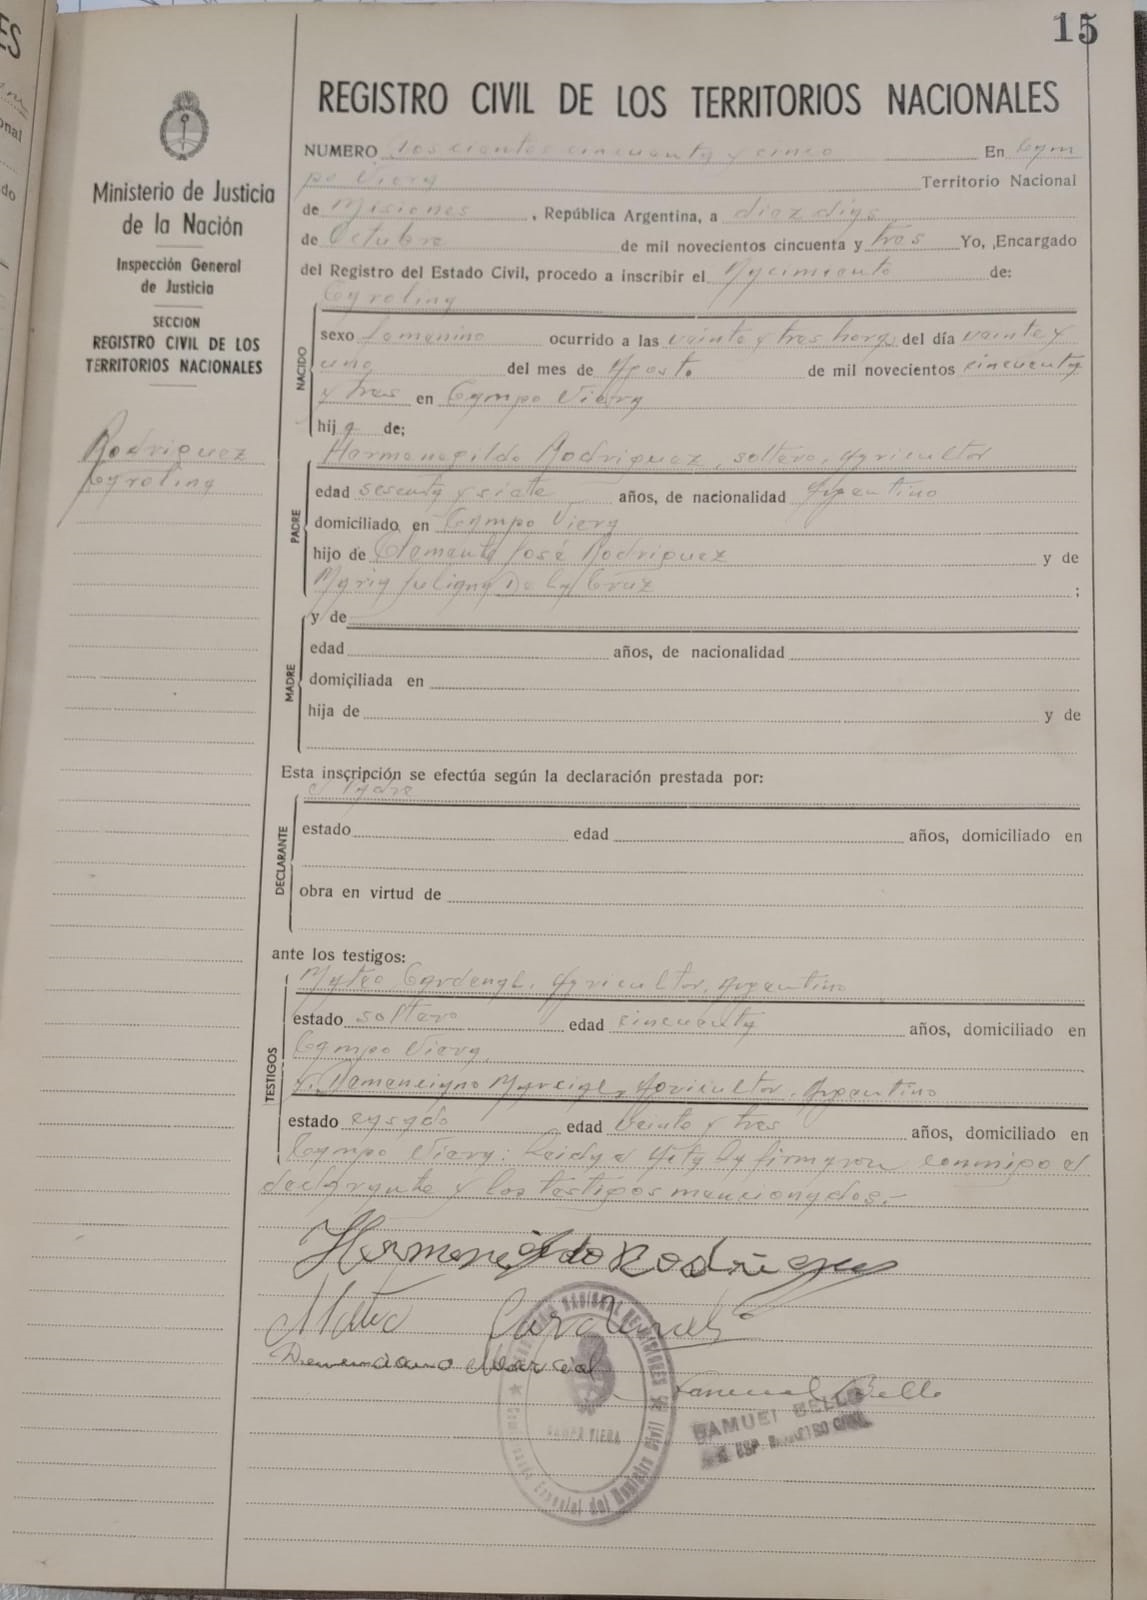 15
ES
REGISTRO CIVIL DE LOS TERRITORIOS NACIONALES
Ministerio de Justicia
de la Nación
Inspección General
de Justicia
SECCION
REGISTRO CIVIL DE LOS
TERRITORIOS NACIONALES
Rodriguez
Carolina
NUMERO doscientos cincuenta y cinco En Cam
po Viera Territorio Nacional
de Misiones, República Argentina, a diez días
de Octubre de mil novecientos cincuenta y tres Yo, Encargado
del Registro del Estado Civil, procedo a inscribir el Nacimiento de:
Carolina
NACIDO
sexo femenino ocurrido a las veinte y tres horas del día veinte y
uno del mes de Agosto de mil novecientos cincuenta
y tres en Campo Viera
hija de;
Hermenegildo Rodriguez, soltero, Agricultor
PADRE
edad sesenta y siete años, de nacionalidad Argentino
domiciliado en Campo Viera
hijo de Clemente José Rodriguez y de
Maria Juliana De la Cruz ;
MADRE
y de
edad años, de nacionalidad
domiciliada en
hija de y de
Esta inscripción se efectúa según la declaración prestada por:
el Padre
DECLARANTE
estado edad años, domiciliado en
obra en virtud de
ante los testigos:
TESTIGOS
Mateo Cardenal, Agricultor, Argentino
estado soltero edad cincuenta años, domiciliado en
Campo Viera
y Demenciano Marcial, Agricultor, Argentino
estado casado edad veinte y tres años, domiciliado en
Campo Viera: Leida el Acta la firmaron conmigo el
declarante y los testigos mencionados.-
Hermenegildo Rodriguez
Mateo Cardenal
Demenciano Marcial
Samuel Bello
SAMUEL BELLO
CAMPO VIERA
Especial del Registro Civil